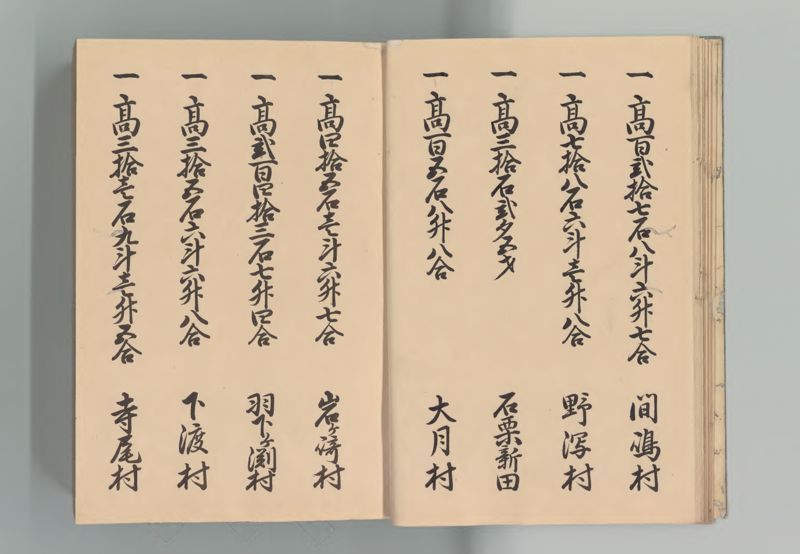 一 高百弐拾七石八斗六升七合 間嶋村
一 高七拾八石六斗壱升八合 野潟村
一 高三拾石弐夕五才 石栗新田
一 高百五石八升八合 大月村
一 高四拾五石壱斗六升七合 岩ヶ崎村
一 高弐百四拾三石七升四合 羽下ヶ渕村
一 高三拾五石六斗六升八合 下渡村
一 高三拾壱石九斗壱升五合 寺尾村